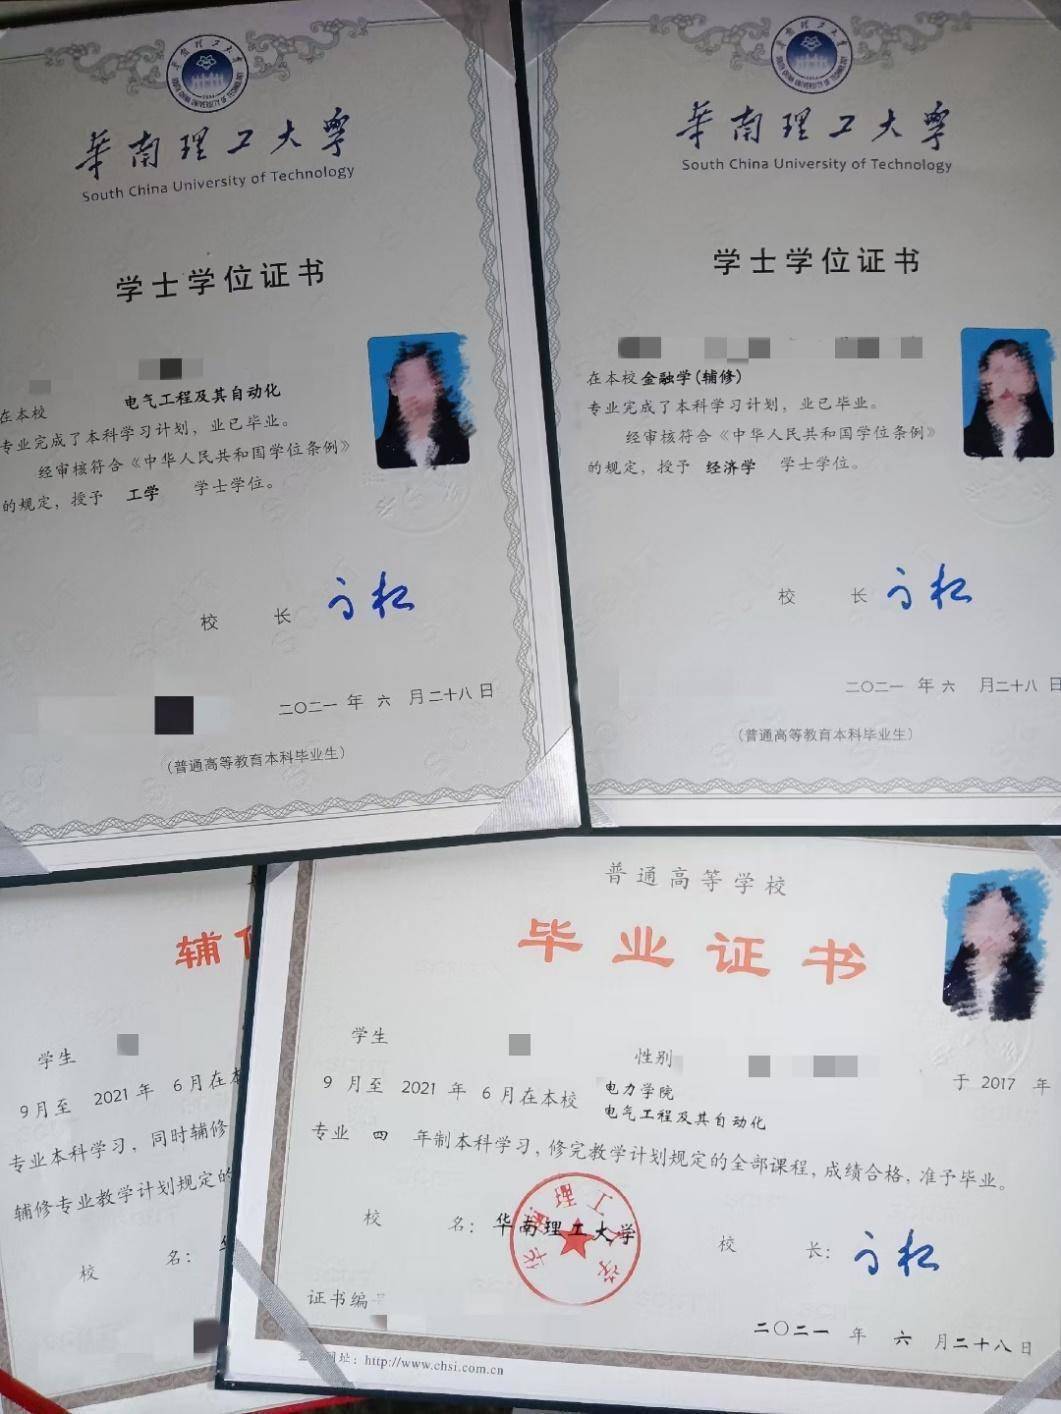 华南理工大学
South China University of Technology
学士学位证书
在本校 电气工程及其自动化
专业完成了本科学习计划，业已毕业。
经审核符合《中华人民共和国学位条例》
的规定，授予 工学 学士学位。
校 长
二〇二一 年 六 月 二十八 日
（普通高等教育本科毕业生）
华南理工大学
South China University of Technology
学士学位证书
在本校 金融学(辅修)
专业完成了本科学习计划，业已毕业。
经审核符合《中华人民共和国学位条例》
的规定，授予 经济学 学士学位。
校 长
二〇二一 年 六 月 二十八 日
（普通高等教育本科毕业生）
辅
学生
9 月至 2021 年 6 月在本
专业本科学习，同时辅修
辅修专业教学计划规定的
校 名：
普通高等学校
毕业证书
学生 性别 于 2017 年
9 月至 2021 年 6 月在本校 电力学院
电气工程及其自动化
专业 四 年制本科学习，修完教学计划规定的全部课程，成绩合格，准予毕业。
校 名：华南理工大学 校 长：
华南理工大学
证书编
二〇二一 年 六 月 二十八 日
网址：http://www.chsi.com.cn